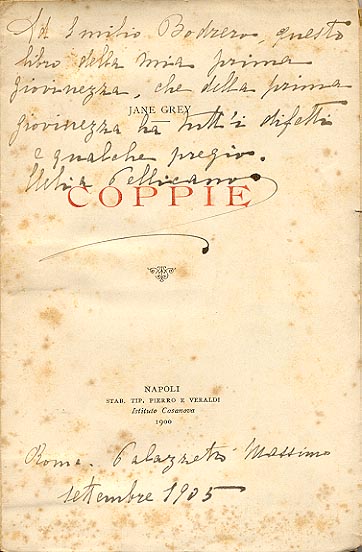 Ad Emilio Bodrero, questo
libro della mia prima
giovinezza, che della prima
JANE GREY
giovinezza ha tutt'i difetti
e qualche pregio.
Clelia Pellicano
COPPIE
NAPOLI
STAB. TIP. PIERRO E VERALDI
Istituto Casanova
1900
Roma. Palazzetto Massimo
settembre 1905